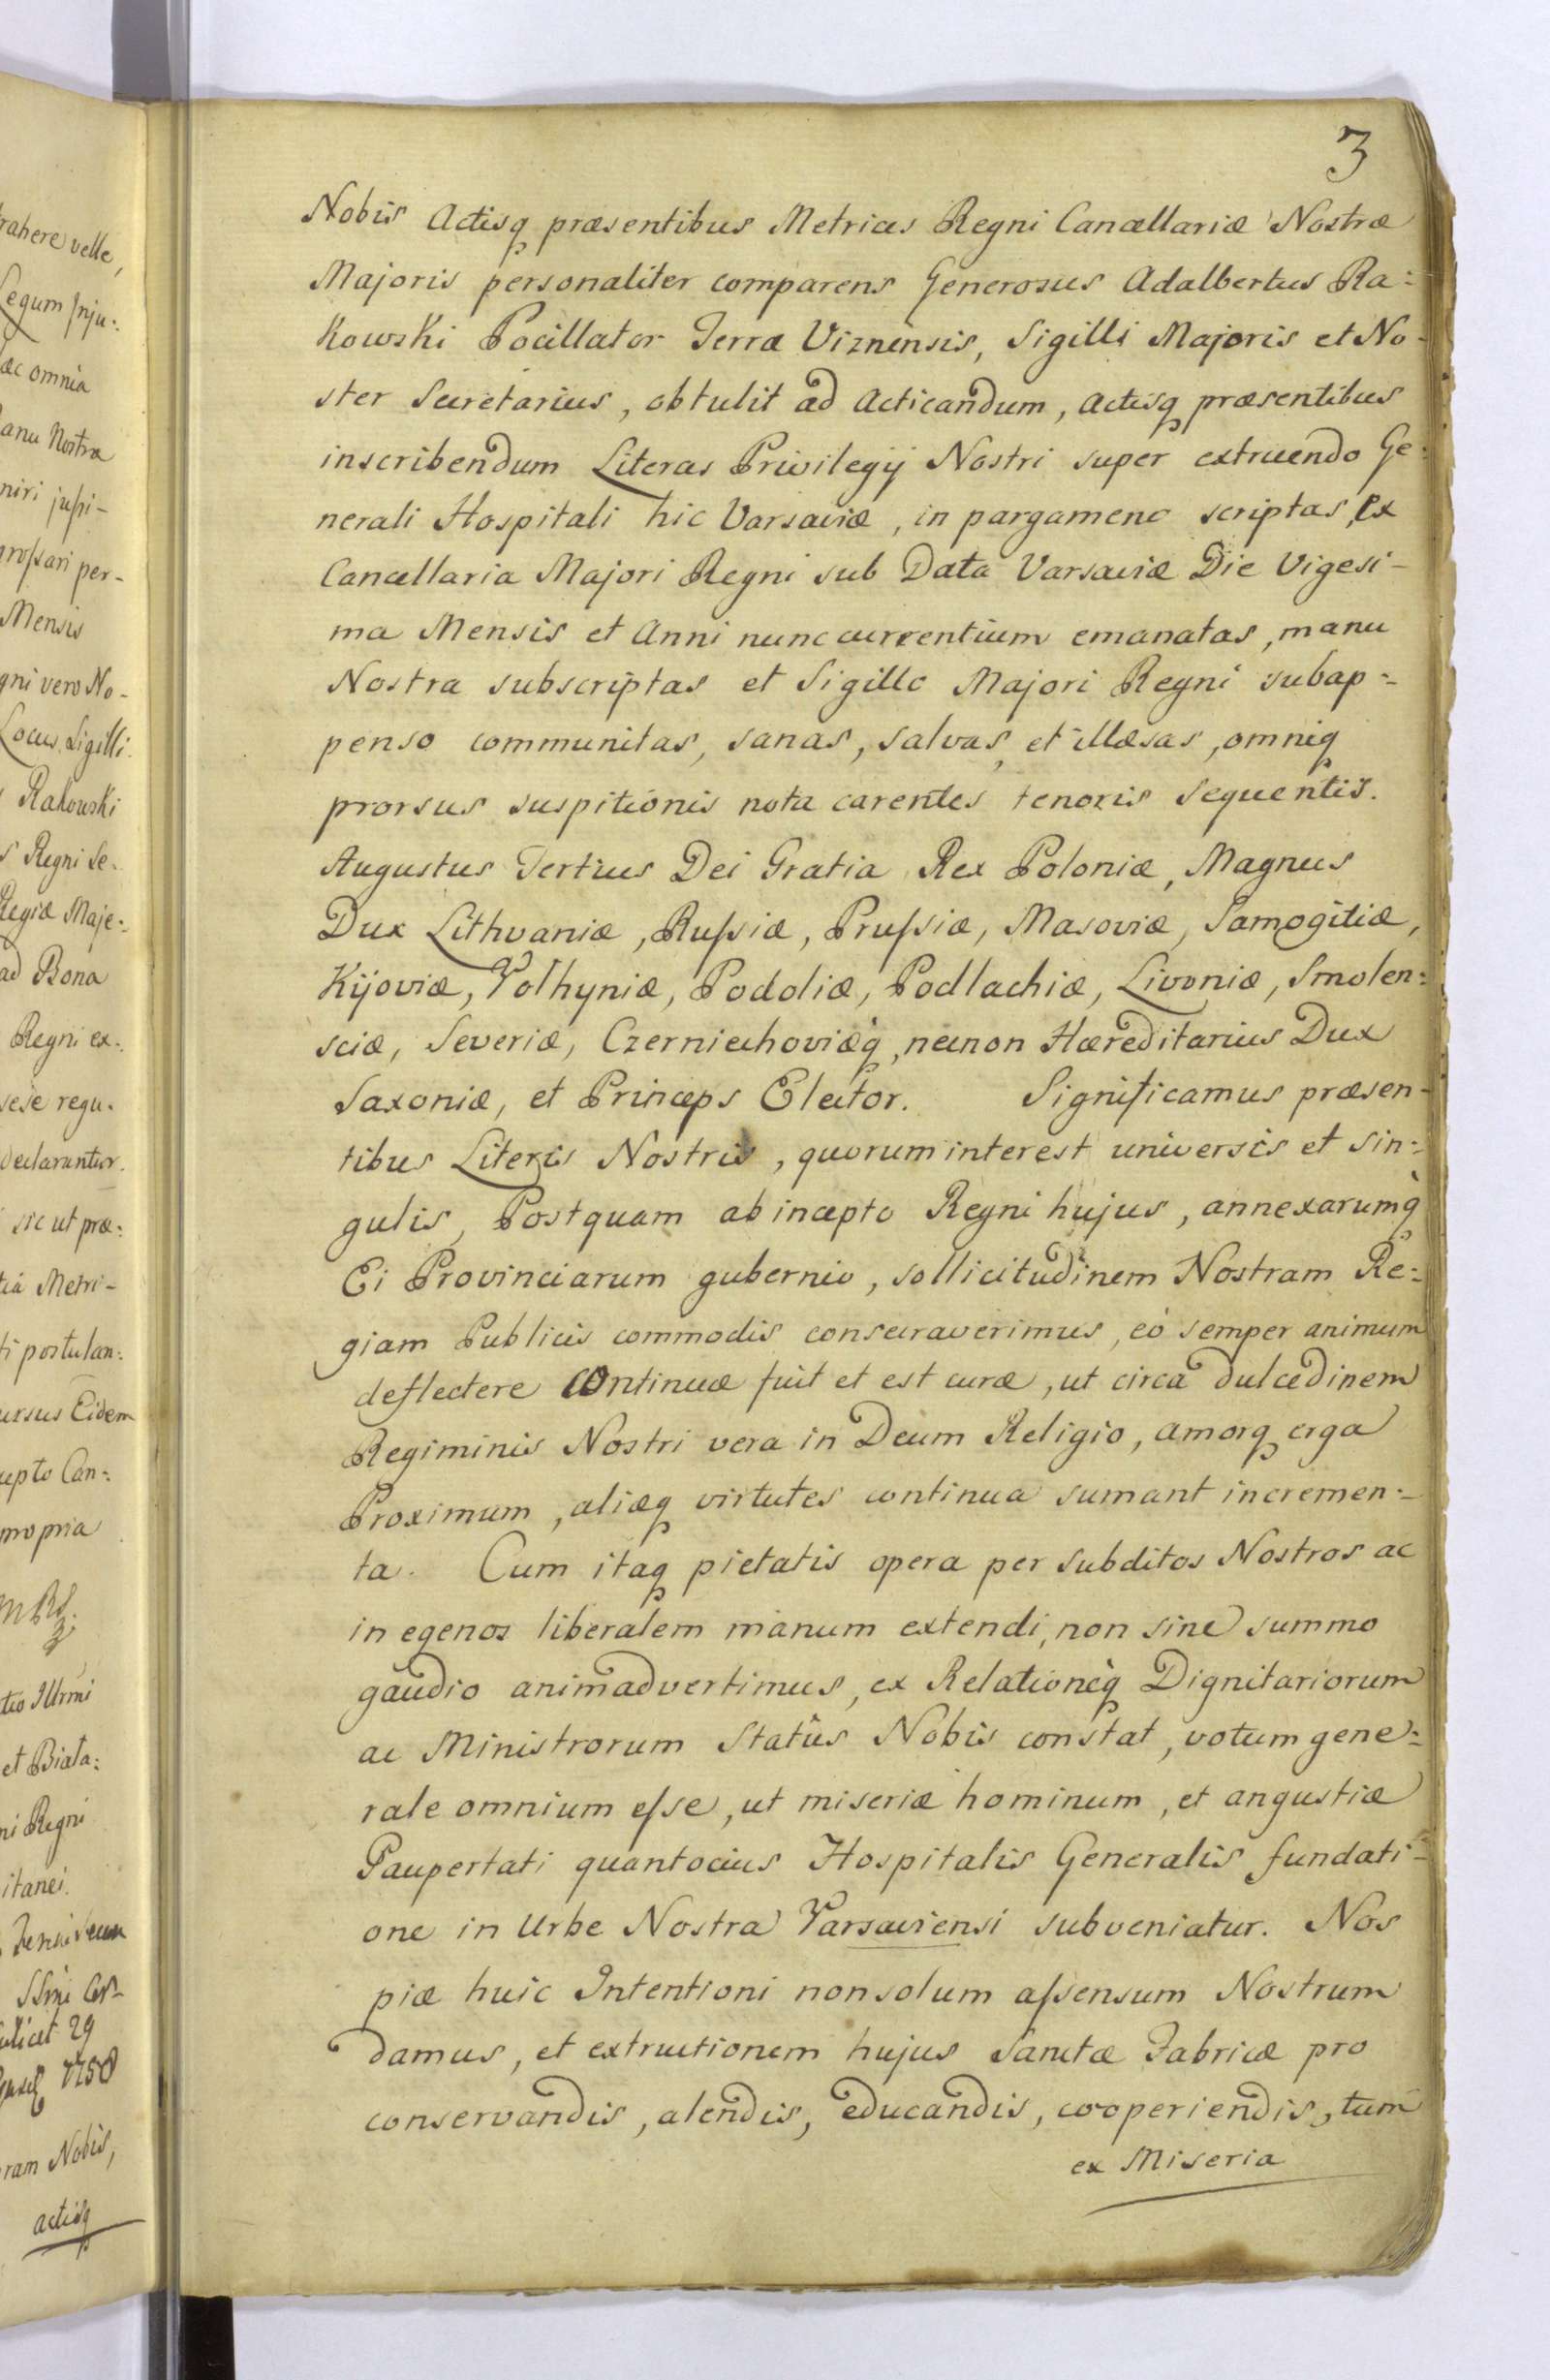 rahere velle,
Legum Inju:
æc omnia
anu Nostra
niri jussi-
grossari per-
Mensis
gni vero No-
Locus Sigilli.
Rakowski
s Regni Se:
Regiæ Maje:
ad Bona
Regni ex:
sese regu:
declarantur.
sic ut præ:
tia Metri-
ti postulan:
ursus Eidem
cepto Can:
propria
tio Illrmi
et Biała:
ni Regni
itanei.
29
1758
ram Nobis,
actisq
3
Nobis Actisq præsentibus Metrices Regni Cancellariæ Nostræ
Majoris personaliter comparens Generosus Adalbertus Ra:
Kowski Pocillator Terræ Viznensis, Sigilli Majoris et No-
ster Secretarius, obtulit ad Acticandum, Actisq præsentibus
inscribendum Literas Privilegij Nostri super extruendo Ge:
nerali Hospitali hic Varsaviæ, in pargameno scriptas, ex
Cancellaria Majori Regni sub Data Varsaviæ Die Vigesi-
ma Mensis et Anni nunc currentium emanatas, manu
Nostra subscriptas et Sigillo Majori Regni subap:
penso communitas, sanas, salvas, et illæsas, omniq
prorsus suspitionis nota carentes tenoris sequentis.
Augustus Tertius Dei Gratia Rex Poloniæ, Magnus
Dux Lithvaniæ, Russiæ, Prussiæ, Masoviæ, Samogitiæ,
Kijoviæ, Volhyniæ, Podoliæ, Podlachiæ, Livoniæ, Smolen:
sciæ, Severiæ, Czerniechoviæq̀, necnon Hæreditarius Dux
Saxoniæ, et Princeps Elector. Significamus præsen-
tibus Literis Nostris, quorum interest universis et sin:
gulis, Postquam ab incepto Regni hujus, annexarumq̀
Ei Provinciarum gubernio, sollicitudinem Nostram Re:
giam Publicis commodis consecraverimus, eò semper animum
deflectere continuæ fuit et est curæ, ut circa dulcedinem
Regiminis Nostri vera in Deum Religio, amorq erga
Proximum, aliæq virtutes continua sumant incremen:
ta. Cum itaq pietatis opera per subditos Nostros ac
in egenos liberalem manum extendi, non sine summo
gaudio animadvertimus, ex Relationeq̀ Dignitariorum
ac Ministrorum Statûs Nobis constat, votum gene:
rale omnium esse, ut miseriæ hominum, et angustiæ
Paupertati quantocius Hospitalis Generalis fundati:
one in Urbe Nostra Varsaviensi subveniatur. Nos
piæ huic Intentioni non solum assensum Nostrum
damus, et extructionem hujus Sanctæ Fabricæ pro
conservandis, alendis, educandis, cooperiendis, tum
ex Miseria